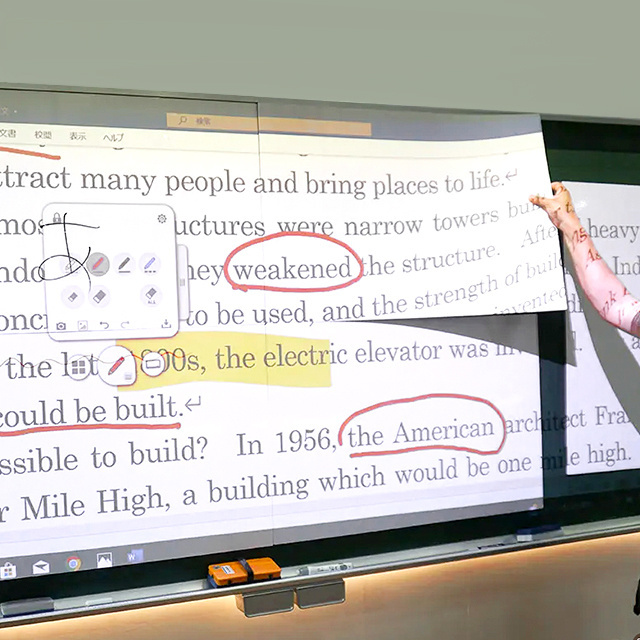 文書 校閲 表示 ヘルプ
検索
ttract many people and bring places to life.↵
mos uctures were narrow towers bu
ndo hey weakened the structure. Afte heavy
onc to be used, and the strength of buil Ind
invented
the lat 00s, the electric elevator was inv
could be built.↵
ssible to build? In 1956, the American architect Fra
r Mile High, a building which would be one mile high.
あ